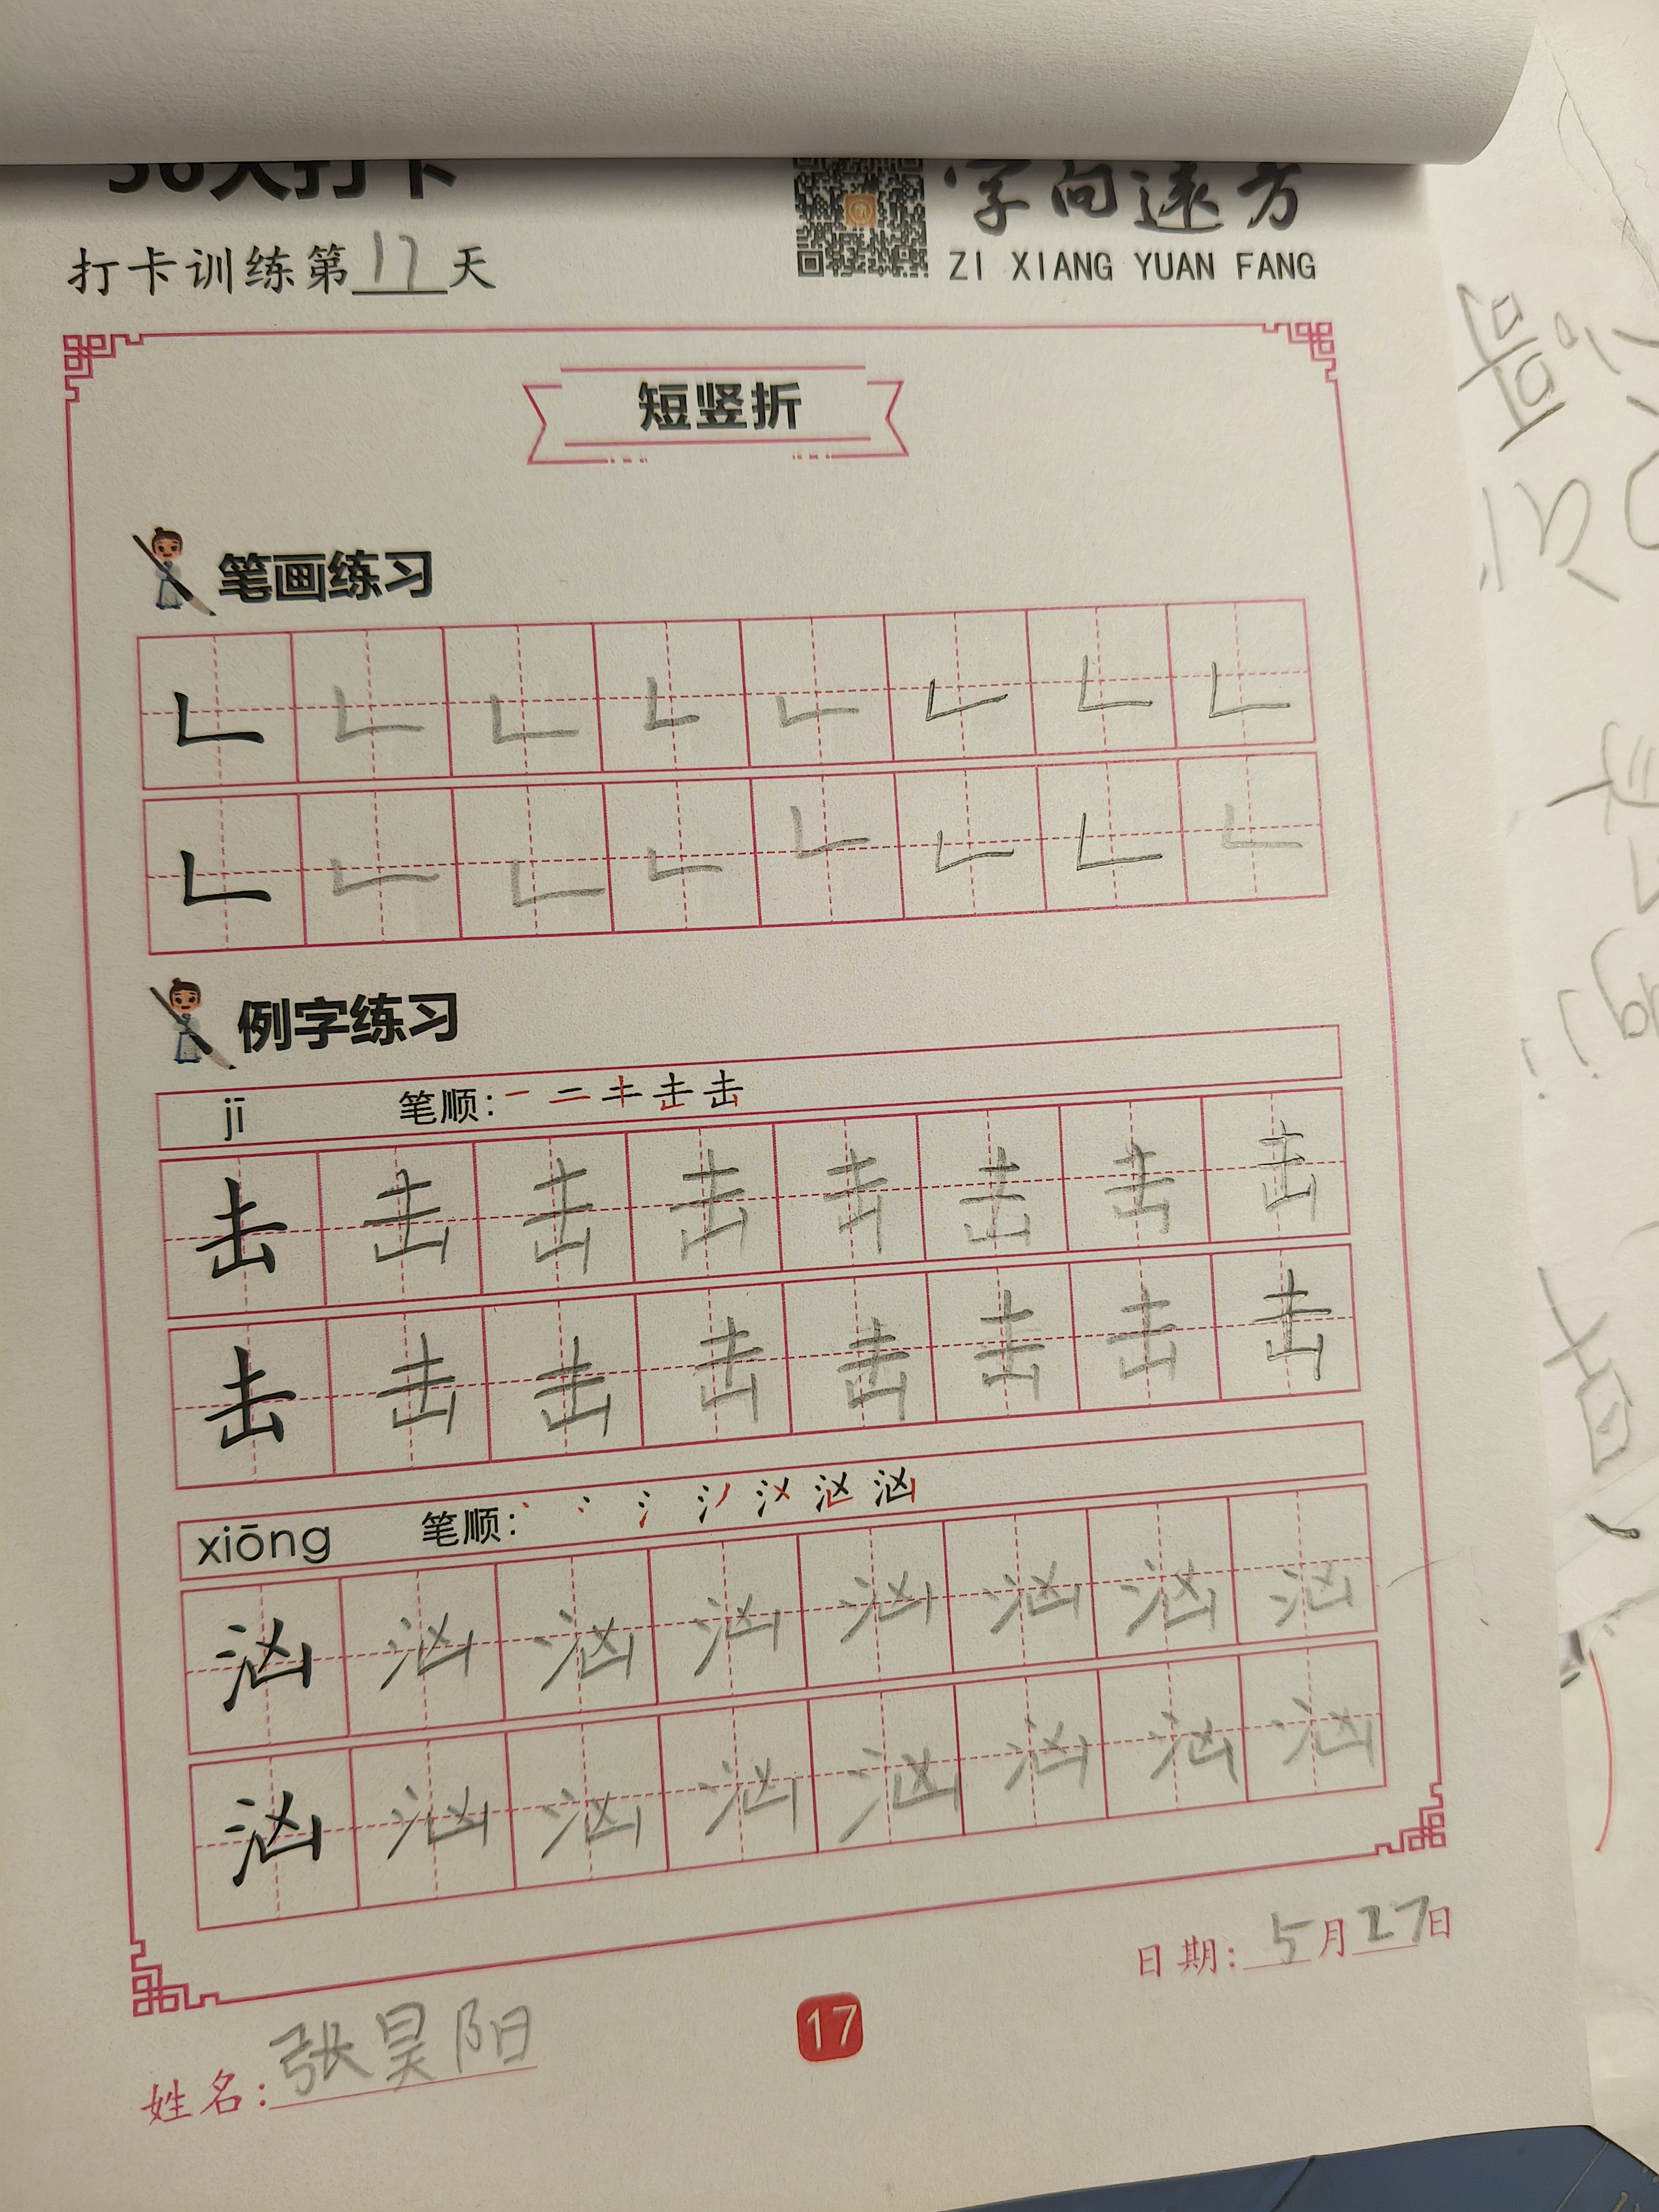 打卡训练第17天
字向远方
ZI XIANG YUAN FANG
短竖折
笔画练习
例字练习
jī 笔顺:
击 击 击 击 击 击 击 击
击 击 击 击 击 击 击 击
xiōng 笔顺:
汹 汹 汹 汹 汹 汹 汹 汹
汹 汹 汹 汹 汹 汹 汹 汹
日期: 5月27日
17
姓名: 张昊阳